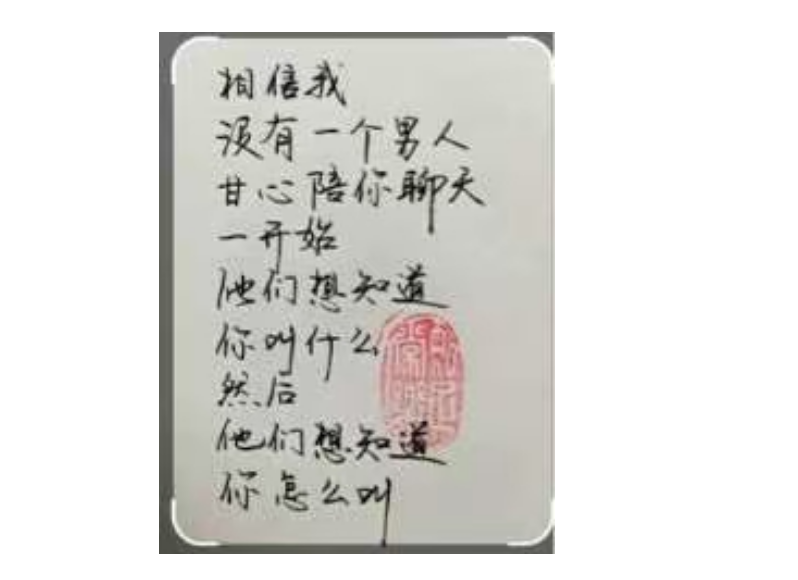 相信我
没有一个男人
甘心陪你聊天
一开始
他们想知道
你叫什么
然后
他们想知道
你怎么叫